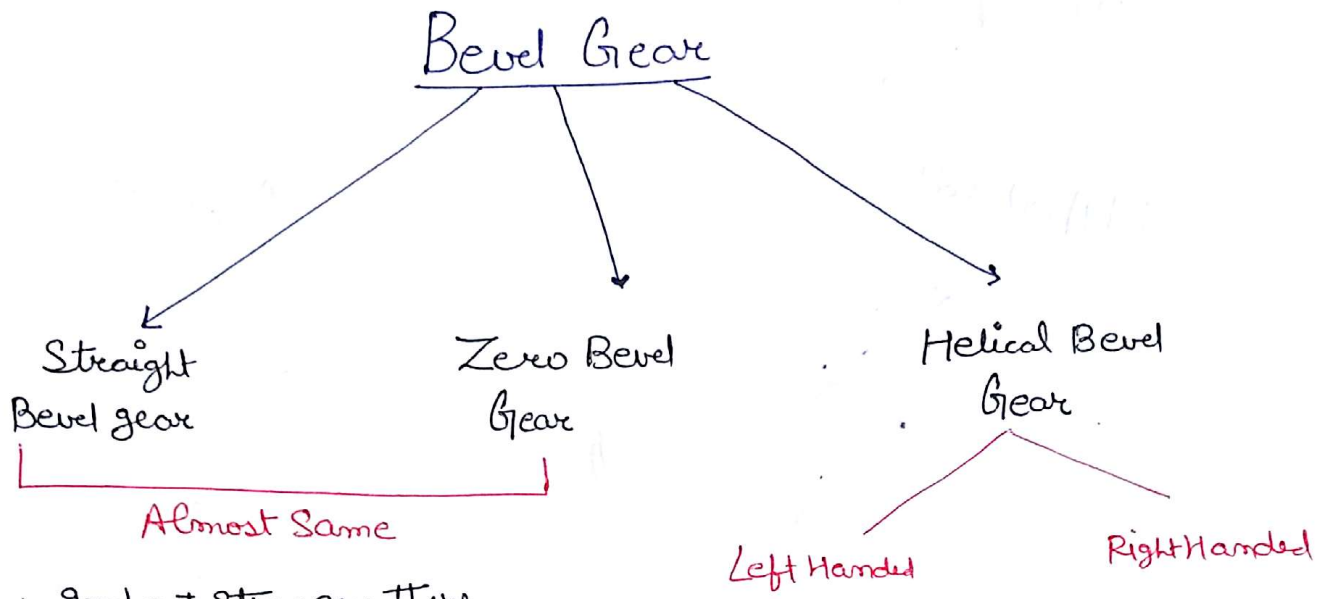 Bevel Gear
Straight
Bevel gear
Zero Bevel
Gear
Helical Bevel
Gear
Almost Same
Left Handed
Right Handed